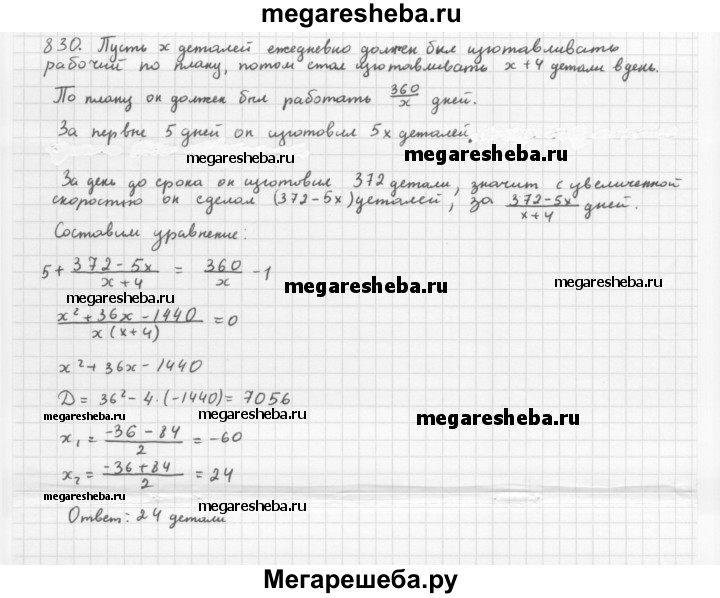 megaresheba.ru
830. Пусть x деталей ежедневно должен был изготавливать
рабочий по плану, потом стал изготавливать x+4 детали в день.
По плану он должен был работать 360/x дней.
За первые 5 дней он изготовил 5x деталей.
megaresheba.ru
megaresheba.ru
megaresheba.ru
За день до срока он изготовил 372 детали, значит с увеличенной
скоростью он сделал (372-5x) деталей, за (372-5x)/(x+4) дней.
Составим уравнение:
5 + (372-5x)/(x+4) = 360/x - 1
megaresheba.ru
megaresheba.ru
megaresheba.ru
(x²+36x-1440)/(x(x+4)) = 0
x²+36x-1440
D = 36²-4·(-1440) = 7056
megaresheba.ru
megaresheba.ru
megaresheba.ru
x₁ = (-36-84)/2 = -60
x₂ = (-36+84)/2 = 24
megaresheba.ru
megaresheba.ru
Ответ: 24 детали
megaresheba.ru
Мегарешеба.ру